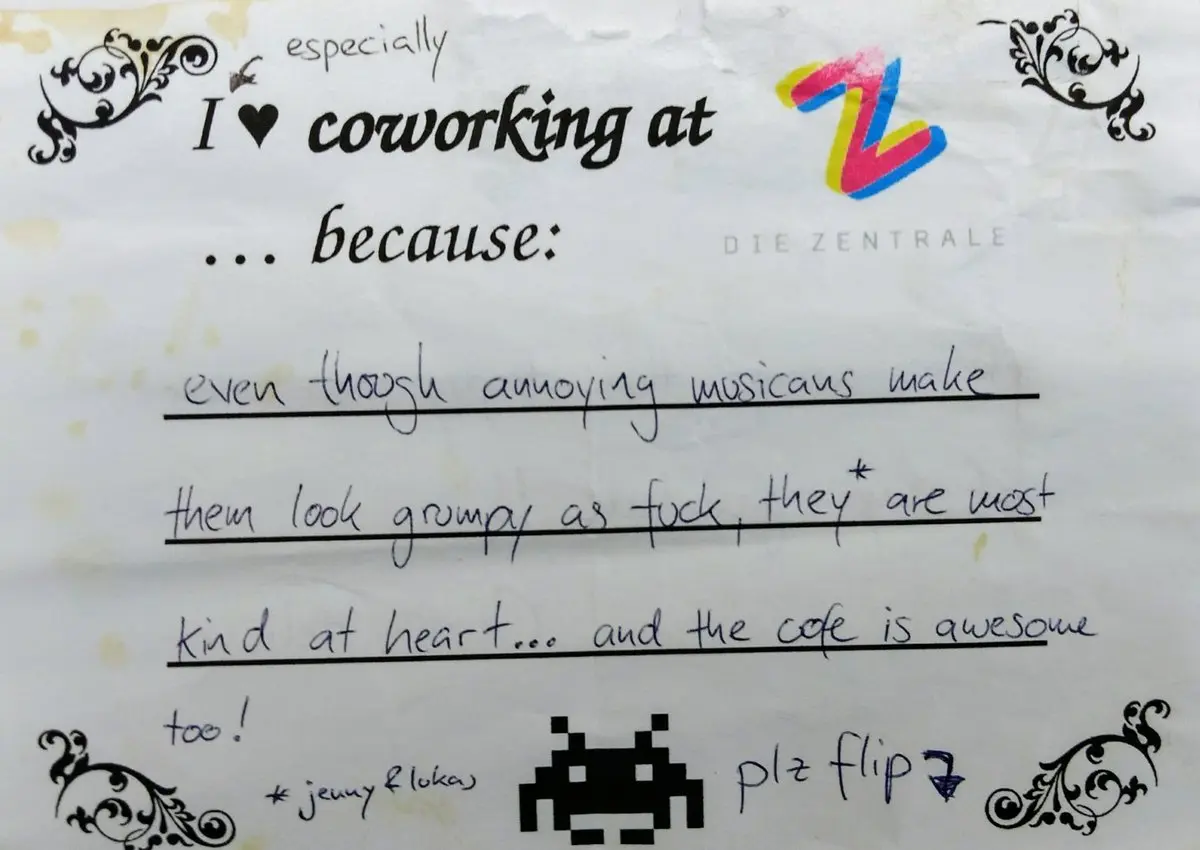 especially
I ♥ coworking at
DIE ZENTRALE
... because:
even though annoying musicans make
them look grumpy as fuck, they* are most
kind at heart... and the cafe is awesome
too!
* jenny & lukas
plz flip